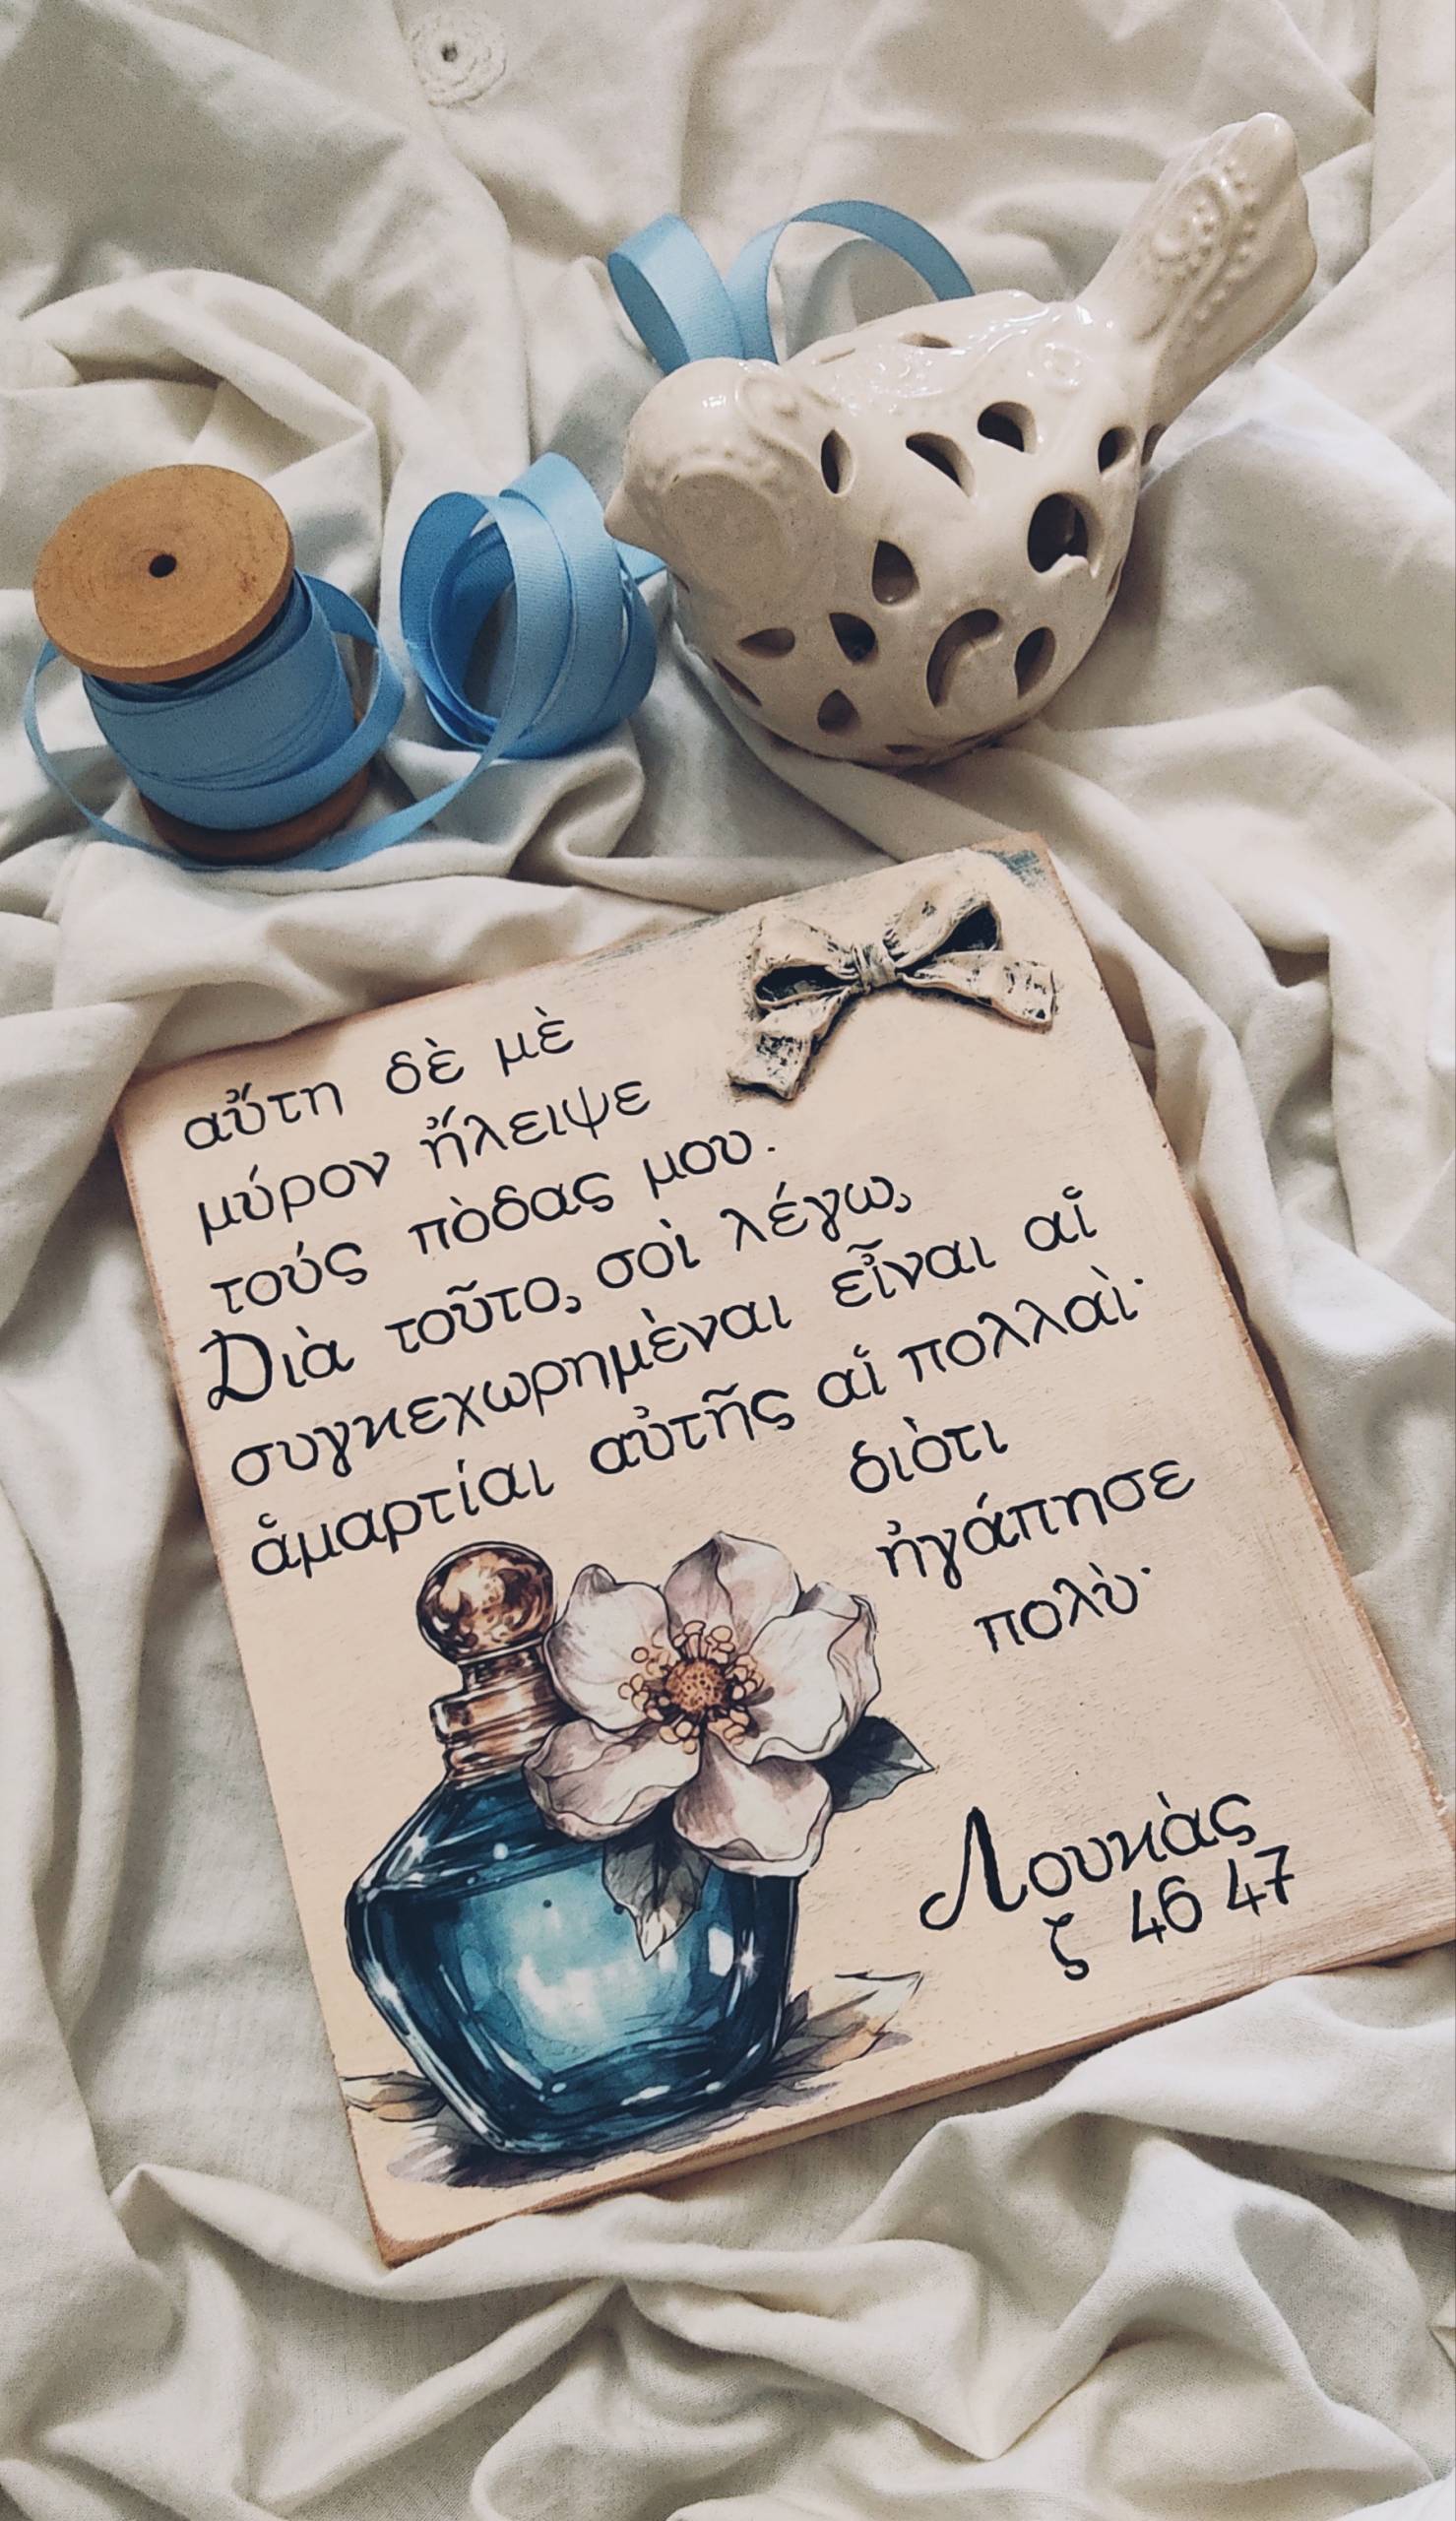 αὕτη δὲ μὲ
μύρον ἤλειψε
τούς πὸδας μου.
Dιὰ τοῦτο, σοὶ λέγω,
συγκεχωρημὲναι εἶναι αἱ
ἁμαρτίαι αὐτῆς αἱ πολλαὶ·
διὸτι
ἠγάπησε
πολὺ·
Λουκὰς
ζ 46 47